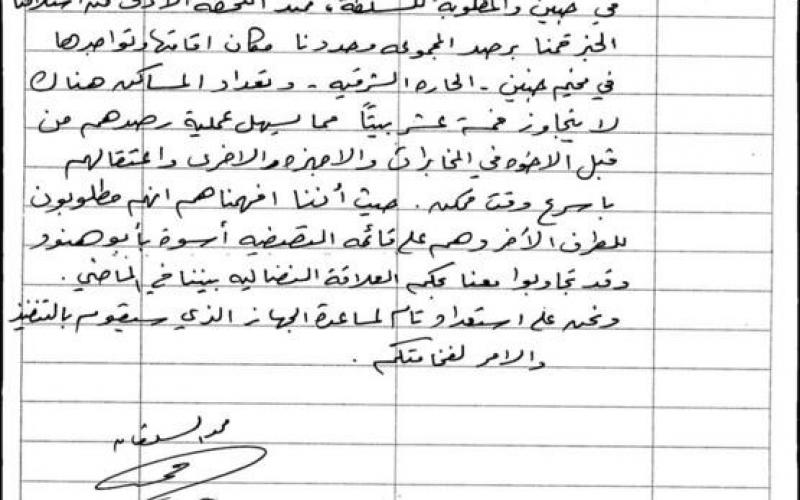 في جنين والمطلوبة للسلطة، منذ اللحظة الأولى
الخبر قمنا برصد المجموعه وحددنا مكان اقامتها وتواجدها
في مخيم جنين - الحاره الشرقيه - وتعداد المساكن هناك
لا يتجاوز خمسة عشر بيتاً مما يسهل عملية رصدهم من
قبل الاخوه في المخابرات والاجهزه الاخرى واعتقالهم
باسرع وقت ممكن. حيث أننا افهمناهم انهم مطلوبون
للطرف الآخر وهم على قائمه التصفيه أسوة بأبو هنود
وقد تجاوبوا معنا بحكم العلاقة النضاليه بيننا في الماضي.
ونحن على استعداد تام لمساعدة الجهاز الذي سيقوم بالتنفيذ
والامر لفخامتكم.